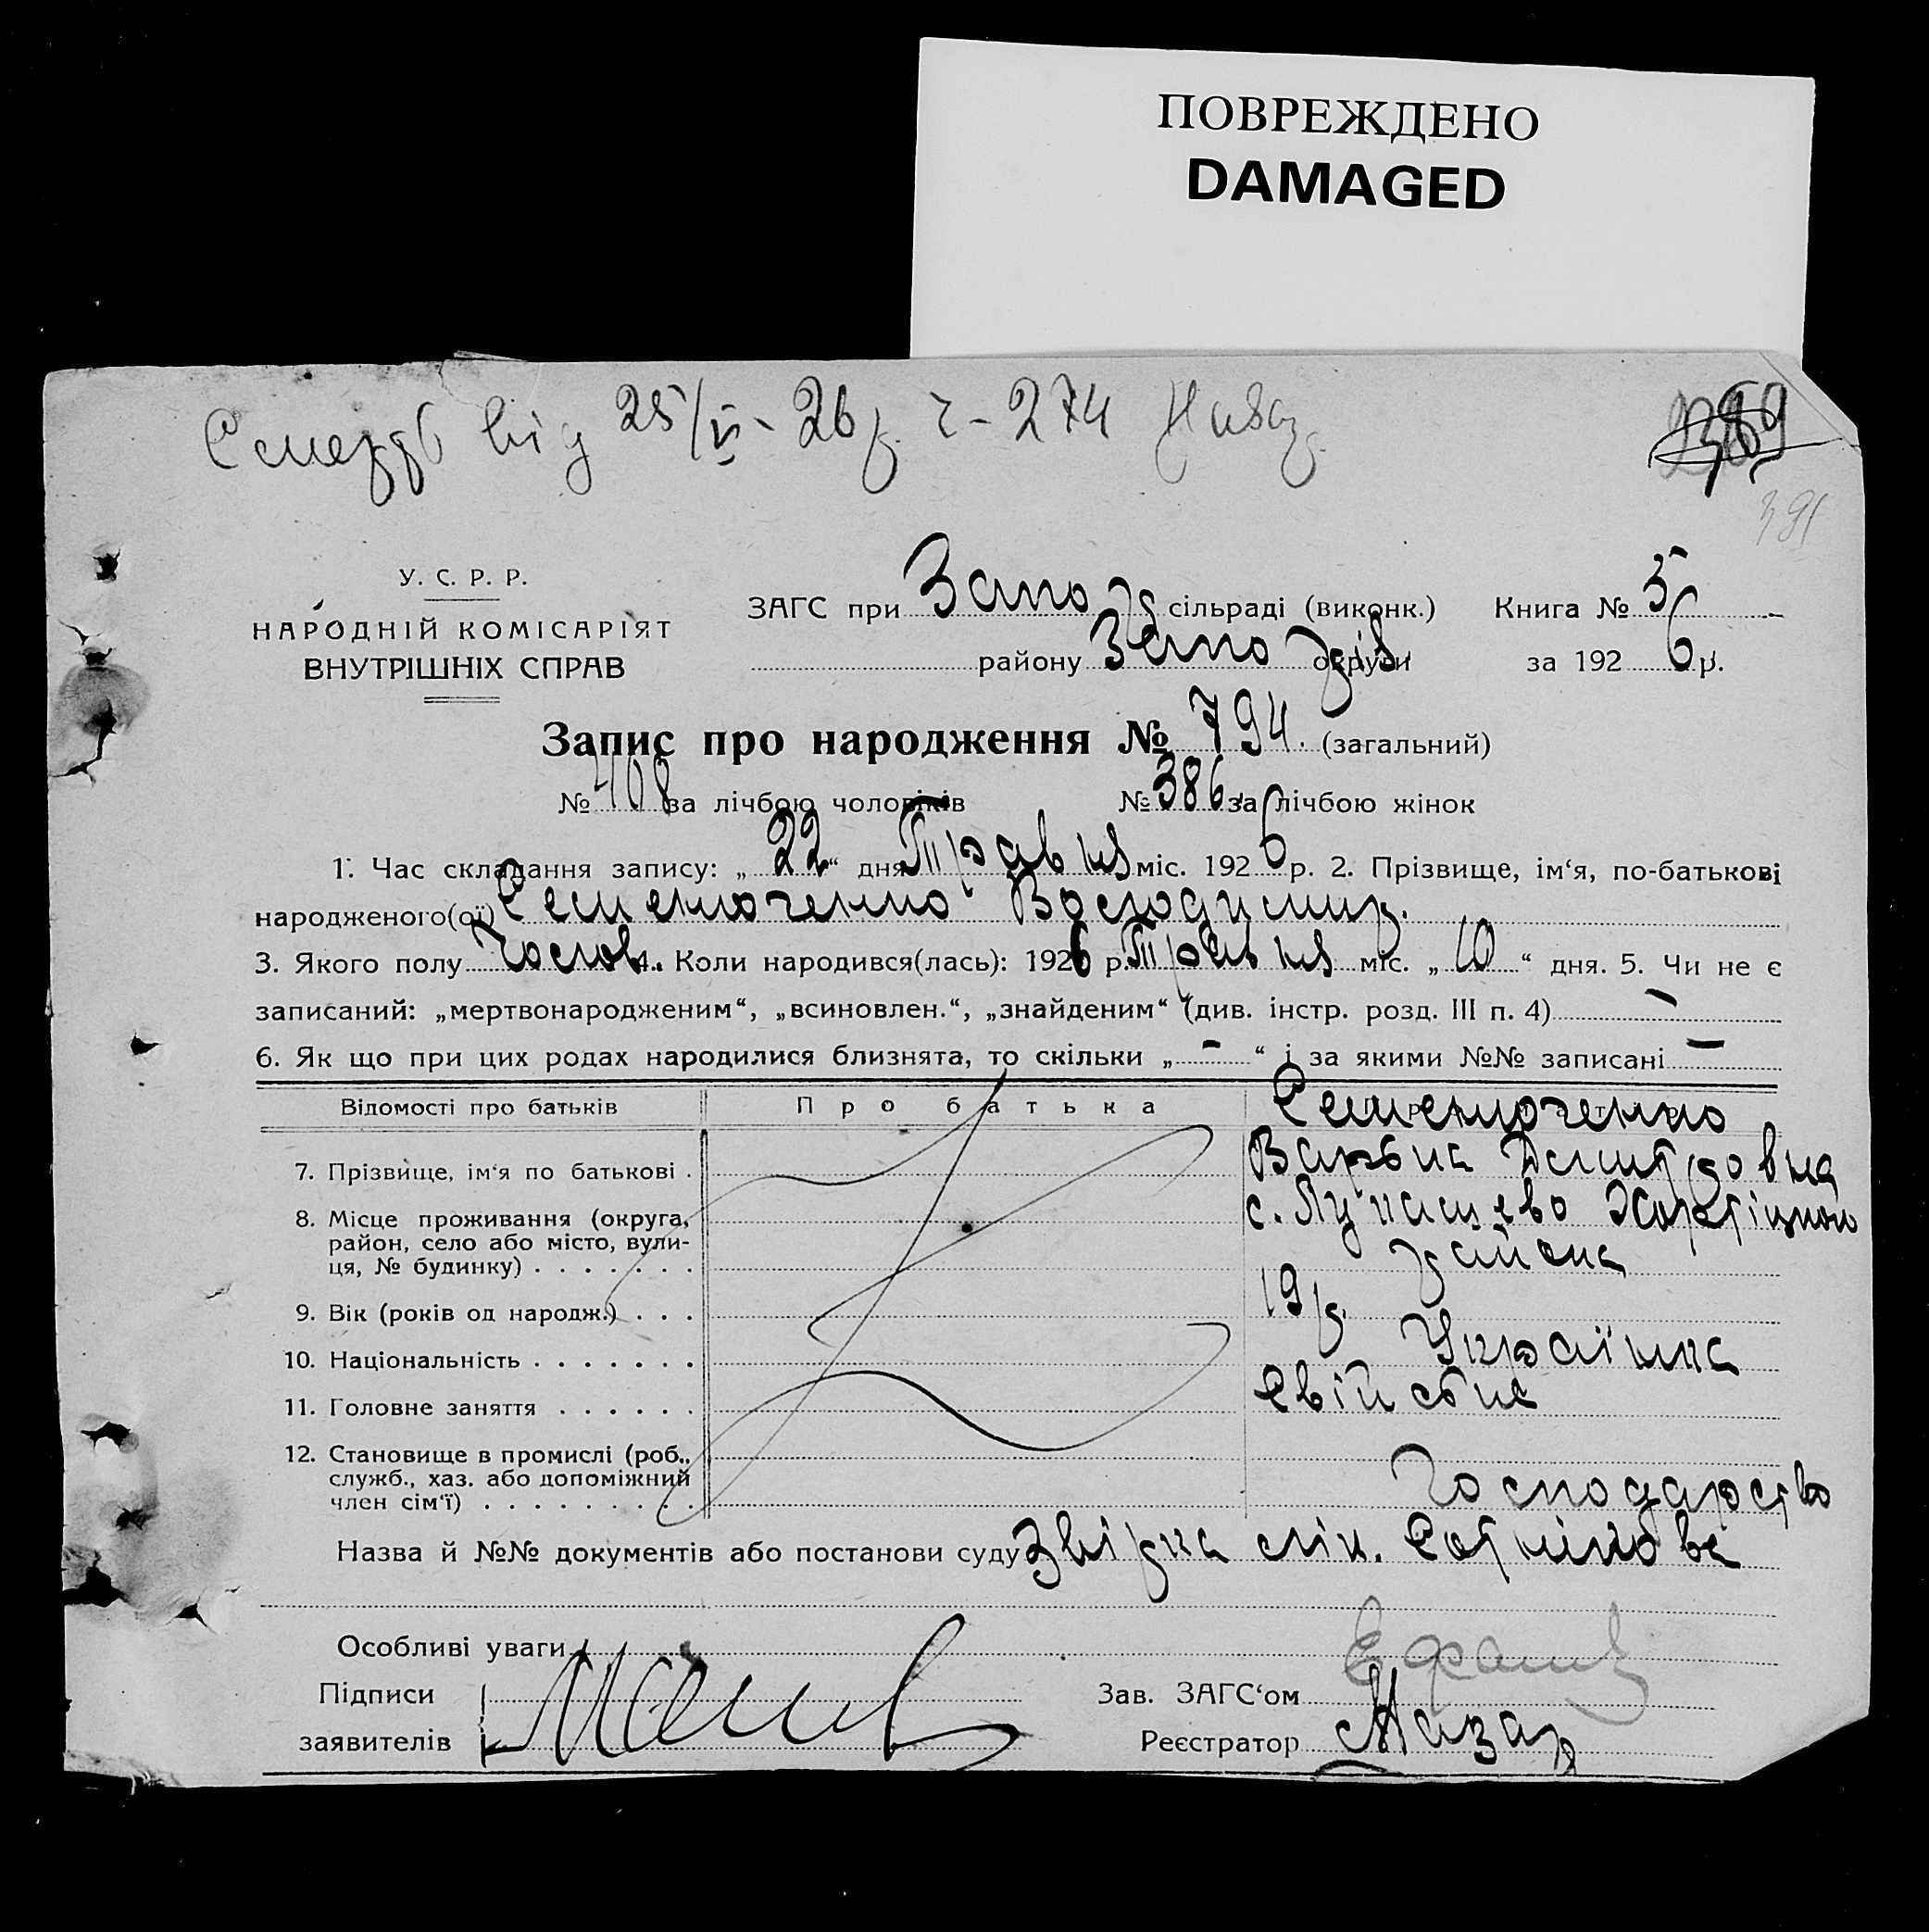 ПОВРЕЖДЕНО
DAMAGED
Смерть від 25/VI - 26 р. ч - 274 Назар
391
У. С. Р. Р.
НАРОДНІЙ КОМІСАРІЯТ
ВНУТРІШНІХ СПРАВ
ЗАГС при Запо сільраді (виконк.) Книга № 5
району Запоріз. округи за 1926 р.
Запис про народження № 794. (загальний)
№ 408 за лічбою чоловіків № 386 за лічбою жінок
1. Час складання запису: „22“ дня Травня міс. 1926 р. 2. Прізвище, ім‘я, по-батькові
народженого(ої) Семенюченко Володимир.
3. Якого полу Чолов. 4. Коли народився(лась): 1926 р. Травня міс. „10“ дня. 5. Чи не є
записаний: „мертвонародженим“, „всиновлен.“, „знайденим“ (див. інстр. розд. III п. 4) -
6. Як що при цих родах народилися близнята, то скільки „-“ і за якими №№ записані -
Відомості про батьків Про батька
Семенюченко
7. Прізвище, ім‘я по батькові . Варвна Дмитровна
8. Місце проживання (округа, с. Лукашево Хортицкого
район, село або місто, вули- района
ця, № будинку) . . . . . . .
9. Вік (років од народж.) . . . 19 р.
10. Національність . . . . . . . Українка
11. Головне заняття . . . . . . Свійське
12. Становище в промислі (роб.,
служб., хаз. або допоміжний Господарство
член сім‘ї) . . . . . . . . .
Назва й №№ документів або постанови суду Звірка лік.
Особливі уваги
Підписи Зав. ЗАГС‘ом
заявителів Реєстратор Назар